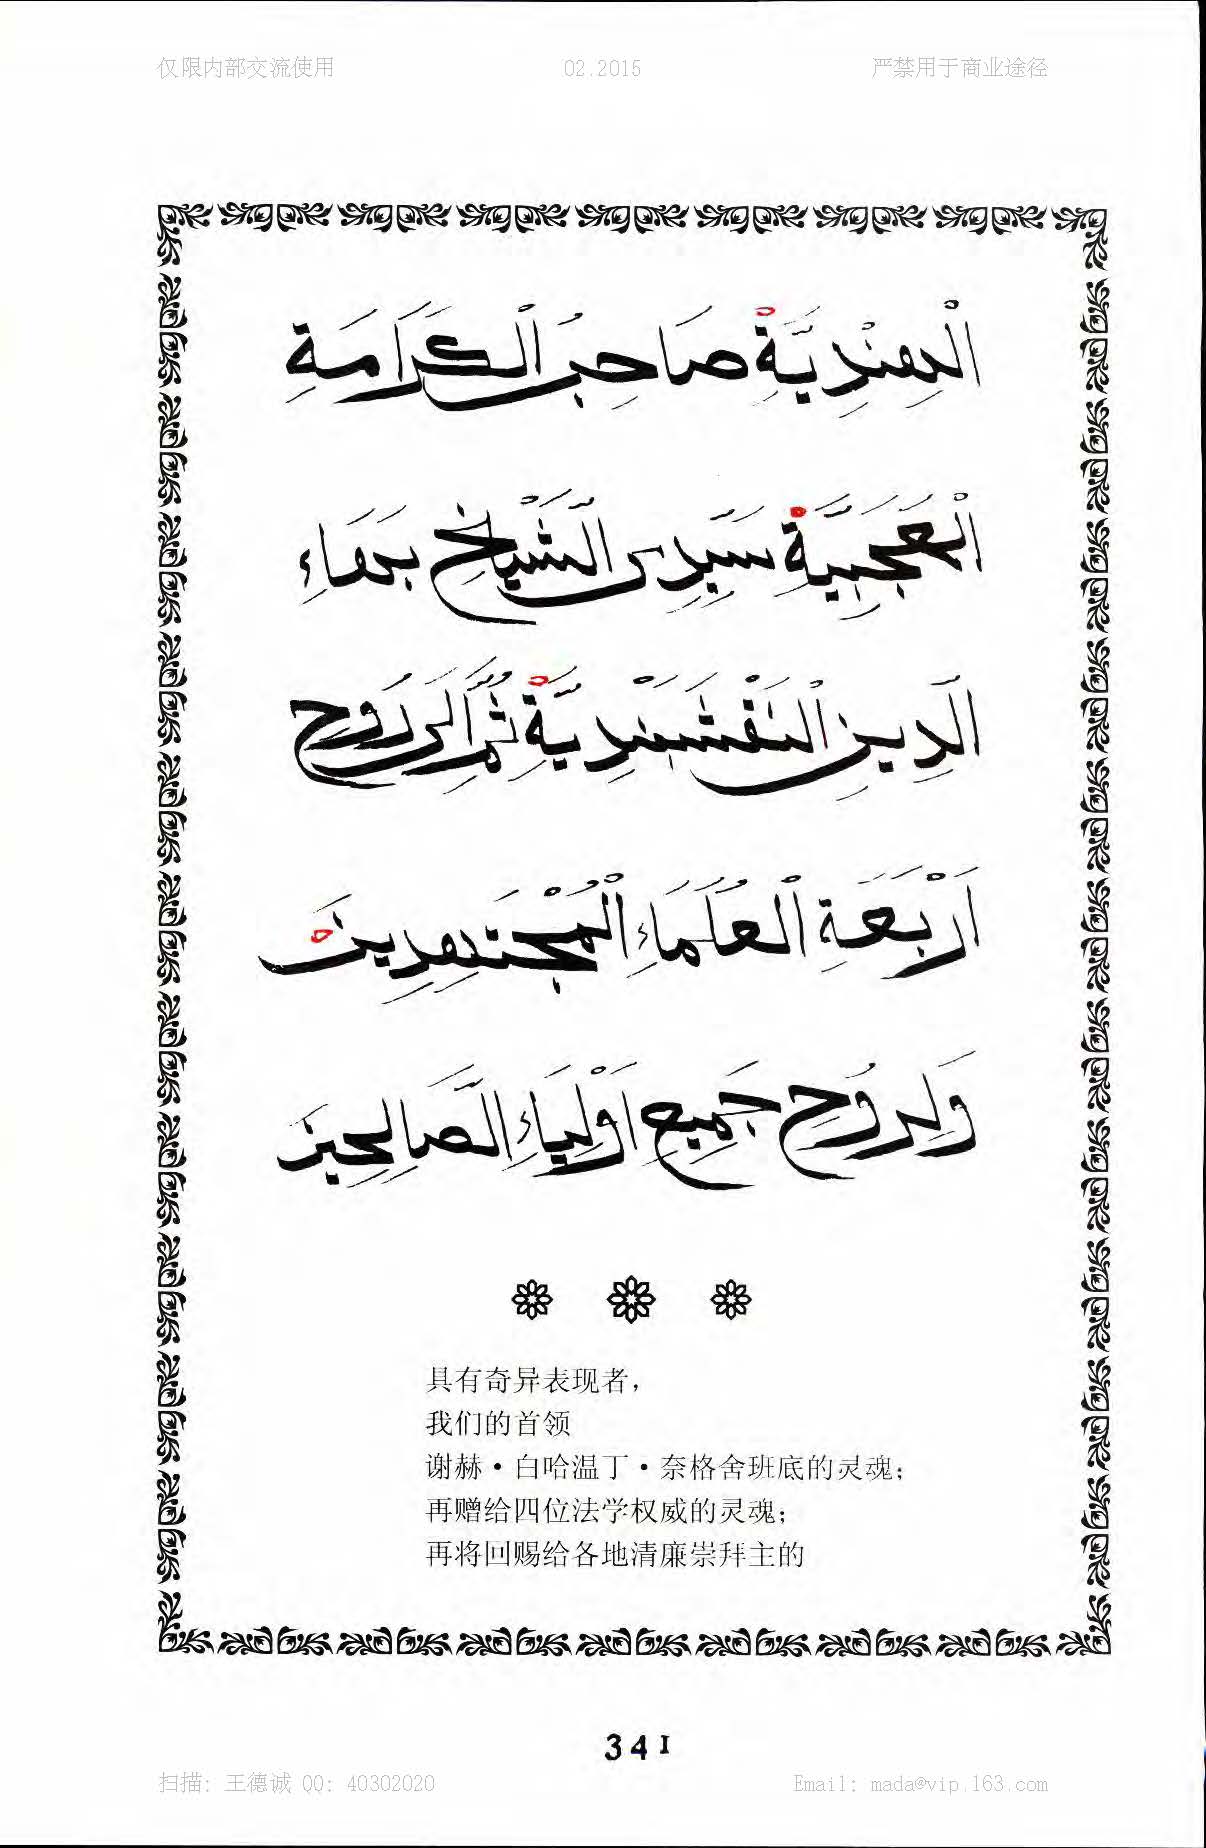 仅限内部交流使用 02.2015 严禁用于商业途径
الْهِنْدِيَّةْ صَاحِبُ الْكَرَامَةِ
الْعَجَبِيَّةْ سَيِّدِى الشَّيْخِ بَهَاءِ
الدِّينِ النَّقْشَبَنْدِيَّةْ ثُمَّ الَى رُوحِ
اَرْبَعَةِ الْعُلَمَاءِ الْمُجْتَهِدِينَ
وَلِرُوحِ جَمِيعِ اَوْلِيَاءِ الصَّالِحِينَ
具有奇异表现者，
我们的首领
谢赫·白哈温丁·奈格舍班底的灵魂；
再赠给四位法学权威的灵魂；
再将回赐给各地清廉崇拜主的
341
扫描: 王德诚 QQ: 40302020 Email: mada@vip.163.com